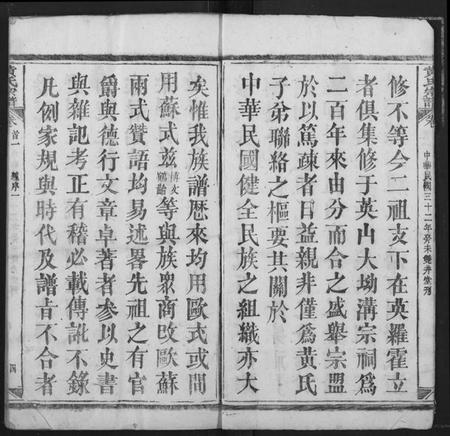 中華民國三十二年癸未
修不等今二祖支下在英羅霍立
者俱集修于英山大坳溝宗祠爲
二百年來由分而合之盛舉宗盟
於以篤疎者日益親非僅爲黃氏
子弟聯絡之樞要其關於
中華民國健全民族之組織亦大
矣惟我族譜歷來均用歐式或間
用蘇式茲等與族眾商改歐蘇
兩式贊語均易述畧先祖之有官
爵與德行文章卓著者參以史書
與雜記考正有稽必載傳訛不錄
凡例家規與時代及譜旨不合者
黃氏宗譜
卷首一
序
四